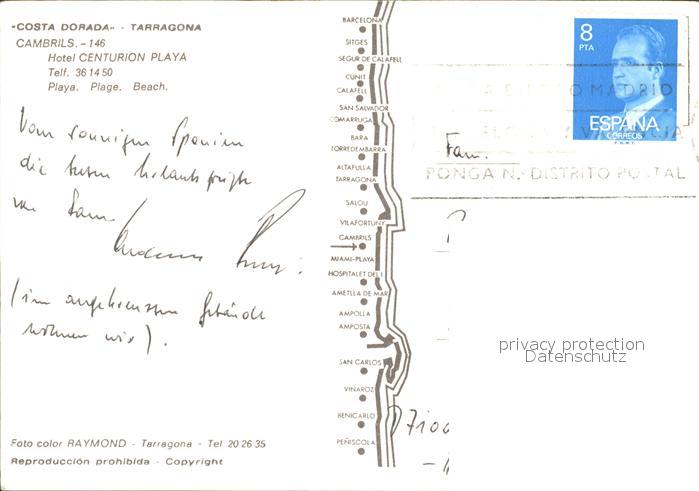 «COSTA DORADA» - TARRAGONA
CAMBRILS. - 146
Hotel CENTURION PLAYA
Telf. 36 14 50
Playa. Plage. Beach.
Vom sonnigen Spanien
die besten Urlaubsgrüße
von Fam.
(im angekreuzten Gebäude
wohnen wir).
Foto color RAYMOND - Tarragona - Tel 20 26 35
Reproducción prohibida - Copyright
BARCELONA
SITGES
SEGUR DE CALAFELL
CUNIT
CALAFELL
SAN SALVADOR
COMARRUGA
BARA
TORREDEMBARRA
ALTAFULLA
TARRAGONA
SALOU
VILAFORTUNY
CAMBRILS
MIAMI-PLAYA
HOSPITALET DEL I
AMETLLA DE MAR
AMPOLLA
AMPOSTA
SAN CARLOS
VINAROZ
BENICARLO
PEÑISCOLA
8
PTA
ESPAÑA
CORREOS
F.N.M.T.
MADRID
PONGA N.º DISTRITO POSTAL
Fam.
privacy protection
Datenschutz
D 7100